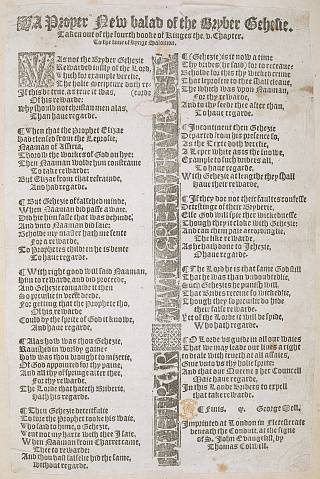 ¶ A Proper New balad of the Bryber Gehesie.
Taken out of the fourth booke of Kinges the .v. Chapter.
To the tune of Kynge Salomon.
WAs not the Bryber Gehezie
Rewarded iustly of the Lord,
Which for example verelie,
The holie scripture doth re-
(corde
If this be true, as true it was,
Of his rewarde:
Why should not christian men alas,
Than haue regarde.
¶ When that the Prophet Elizae
Had clensed from the Leprosie,
Naaman of Assiria,
Thorow the workes of God on hye:
Then Naaman wolde him constraine
To take rewarde:
But Elizae from that refrained,
And had regarde.
¶ But Gehezie of falsehed minde,
When Naaman did passe awaie,
Did hie him fast that was behinde,
And vnto Naaman did saie:
Beholde my maister hath me sente
For a rewarde,
To prophetes children he is bente
To haue regarde.
¶ With right good will said Naaman,
him to rewarde, and did procéede,
And Gehezie contrarie it than
So vncutlie in worde
For getting that the Prophete tho,
Of this rewarde
Could by the spirit of God it knowe,
And haue regard.
¶ Alas how was thou Gehezie,
Rauished in worldly gaine:
How was thou brought to miserie,
Of God appointed for thy paine,
And all thy ofspring after thee,
For thy rewarde,
The Lorde that hateth Briberie,
hath his regard.
¶ Then Gehezie deceitfulie
Tolde the Prophet tooke his waie,
Who said to hime, o Gehezie,
Went not my harte with thée I saie,
When Naaman from Charret came,
Thee to rewarde:
And thou hast falselie hid the same,
without regarde.
¶ Gehezie, is it now a time
Thy bribes (he said) for to receaue
Beholde for this thy wicked crime
That leprosie to thee shall cleaue,
The which was vpon Naaman,
For thy rewarde,
And to thy séede thee after than,
To haue regarde.
¶ Incontinent then Gehezie
Departed from his presence so,
As the Texte doth verefie,
A Leper white as is the snowe,
Example to such bribers all,
To haue regard:
With Gehezie a Leasye they shall
haue their rewarde,
¶ If they doe not their faultes confesse
Detestinge of their Bryberie,
Else God will spie their wickednesse
Though they it cloke with Gehezie:
And can them paie accordinglie,
The like rewarde.
As he hath done to Gehezie,
D haue regarde.
¶ The Lorde he is that same God still
That he was than vndoubtedlie,
Such Gehezies he punish will,
That Bribes receiue so gréedelie,
Though they so preuilie do hide
their false rewarde.
Yet of the Lorde it will be spide,
Who hath regarde.
¶ O Lorde vs guide in all our waies
That we may leade our liues aright
To deale with trueth at all assaies,
Giue vnto vs thy holie sprite:
And that our Quéene & her Councell
Maie haue regarde,
In this Lande Bribers to expell
that take rewarde.
¶ Finis. q. George Mell.
Imprinted at London in Fleetestreate
beneath the Conduit, at the signe
of S. John Euangelist, by
Thomas Colwell.